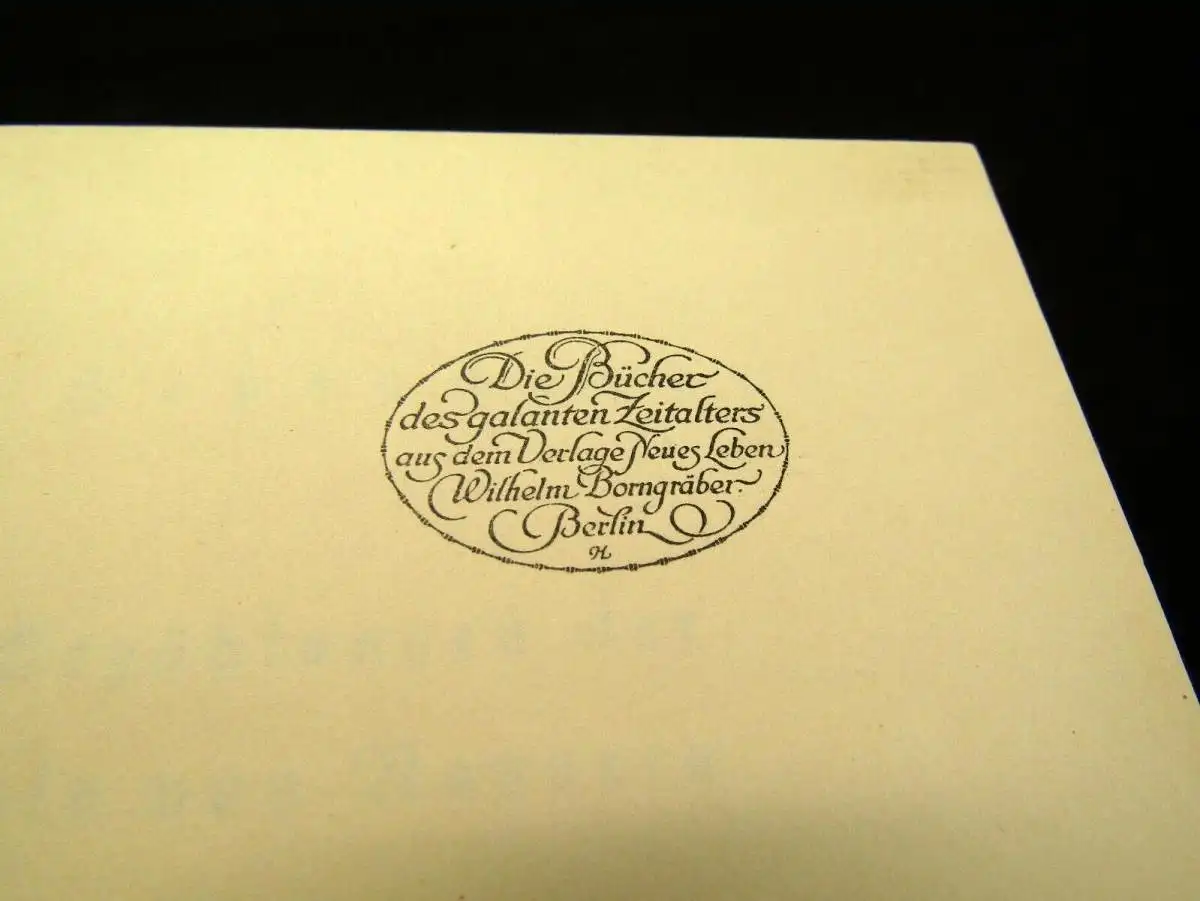 Die Bücher
des galanten Zeitalters
aus dem Verlage Neues Leben
Wilhelm Borngräber.
Berlin